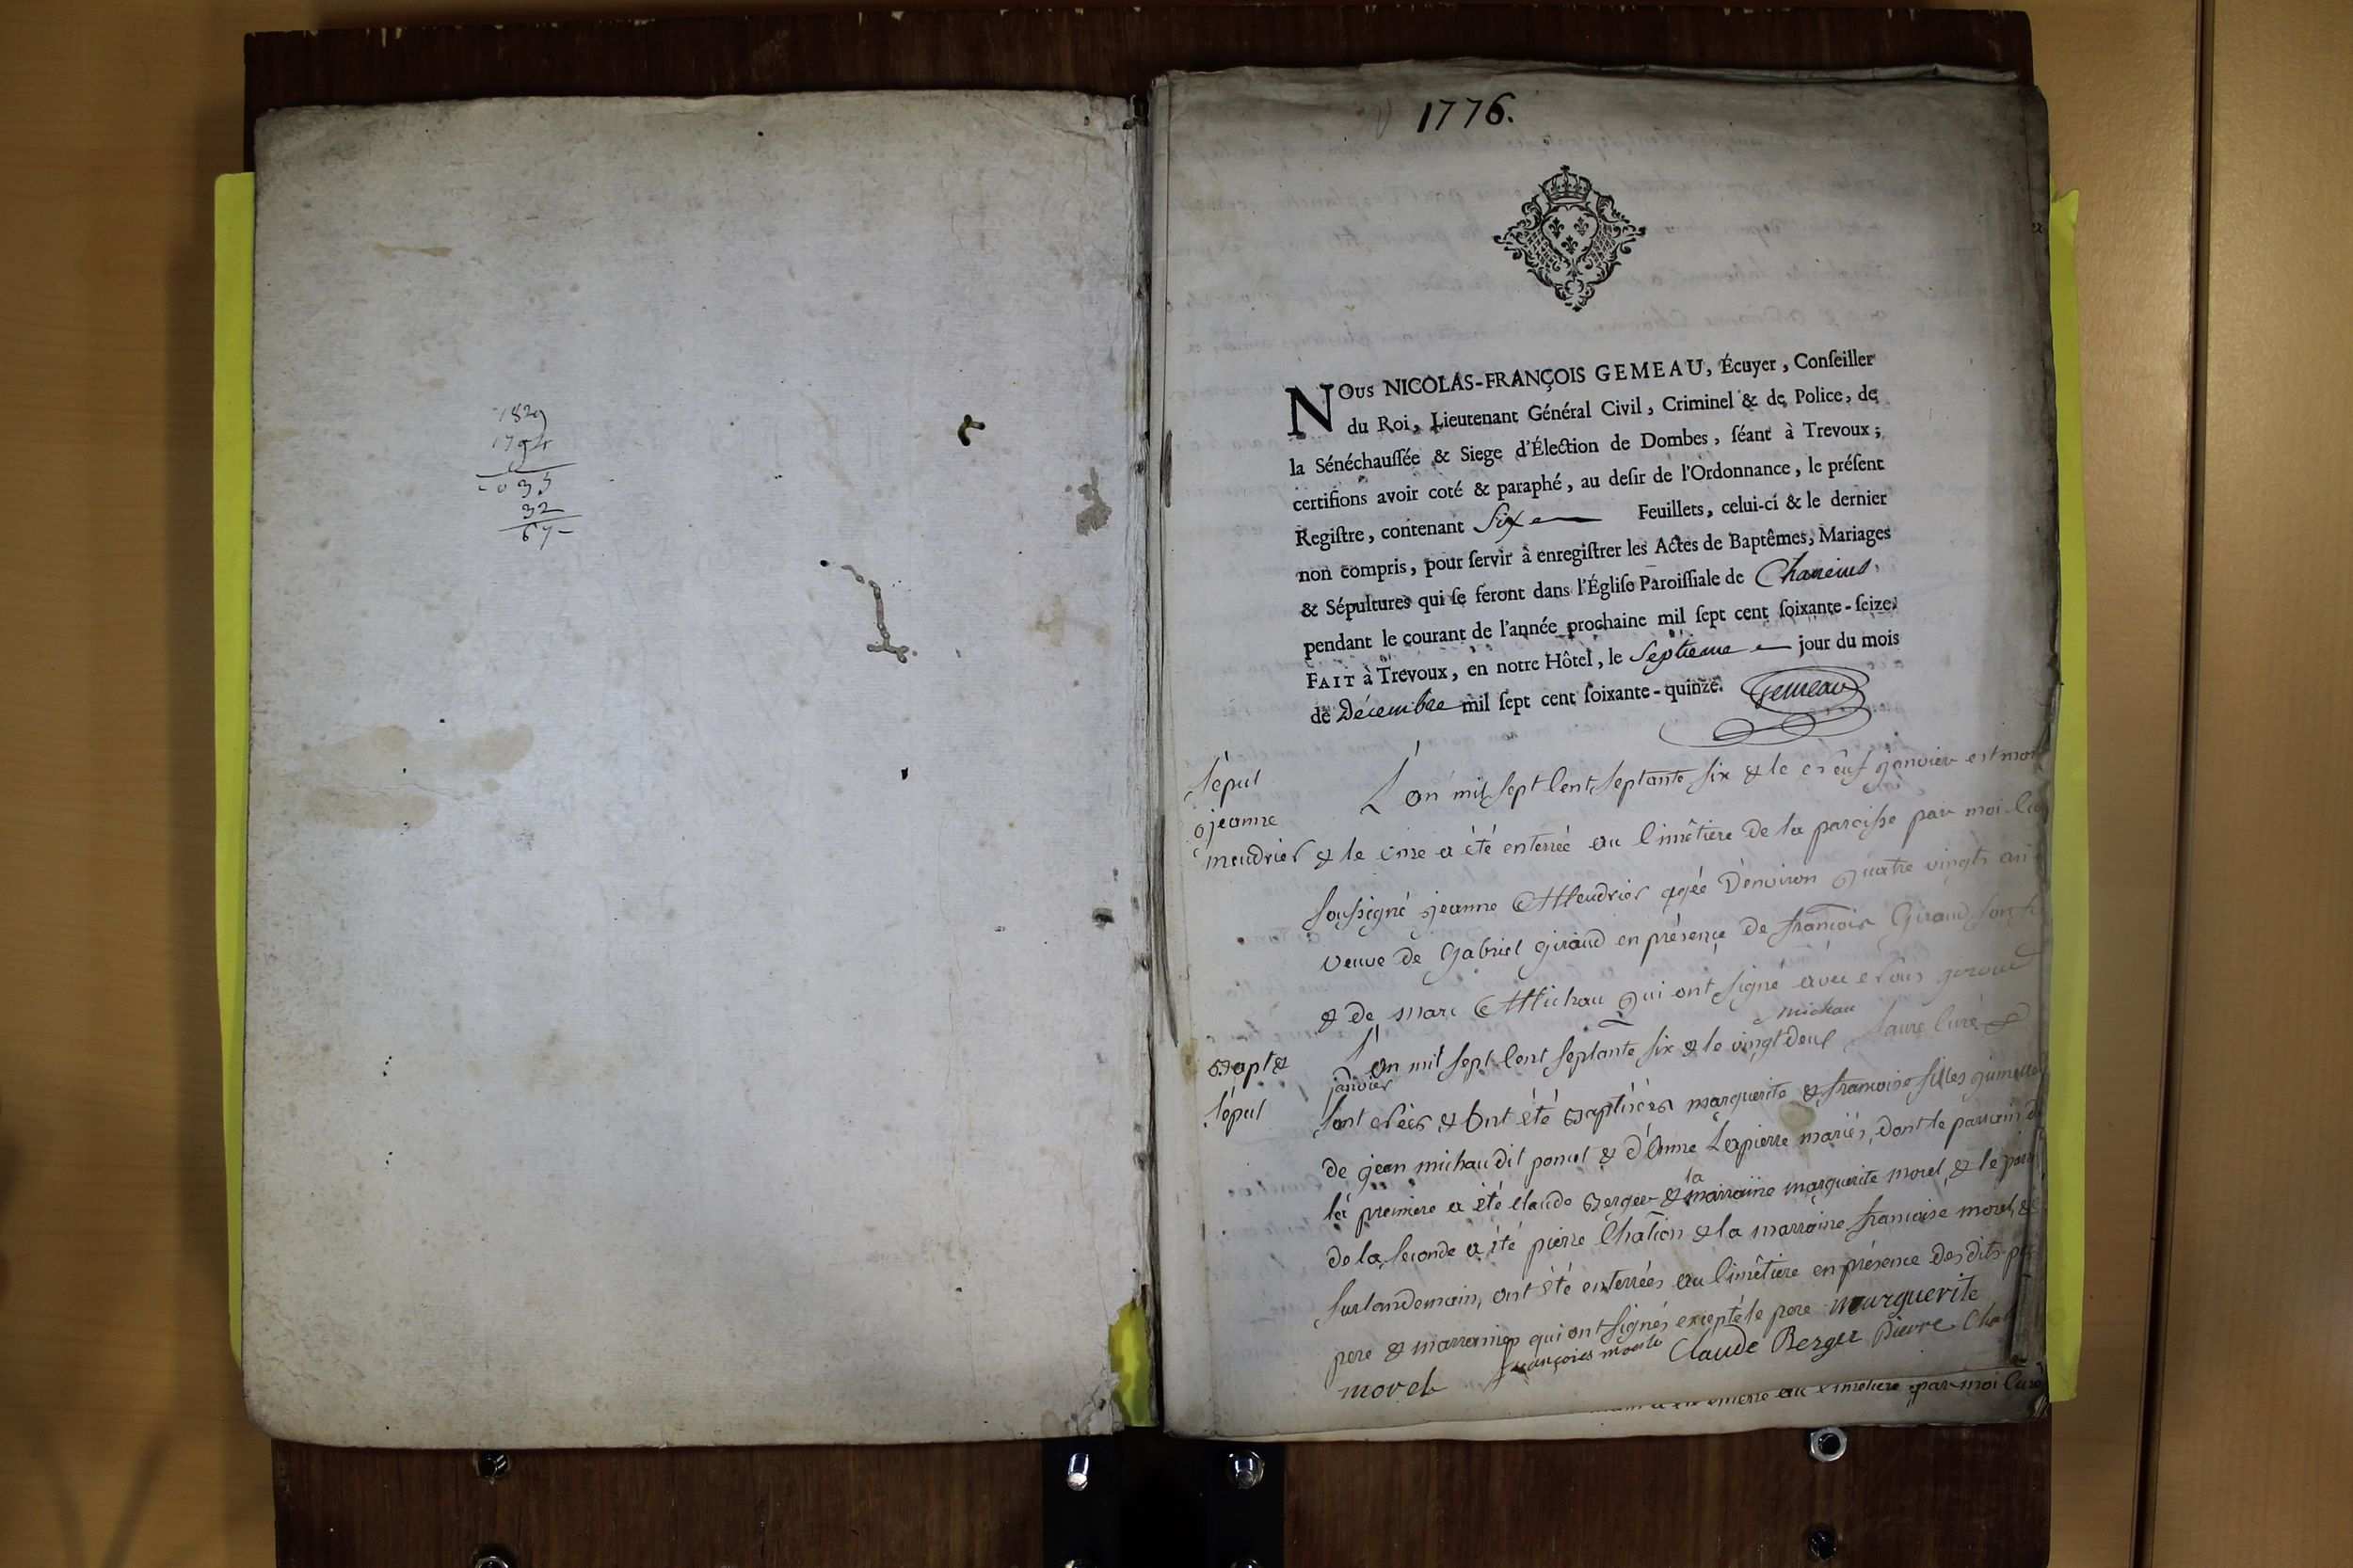 1829
1794
035
32
67
1776.
NOUS NICOLAS-FRANÇOIS GEMEAU, Écuyer, Conſeiller
du Roi, Lieutenant Général Civil, Criminel & de Police, de
la Sénéchauſſée & Siege d'Élection de Dombes, ſéant à Trevoux;
certifions avoir coté & paraphé, au deſir de l'Ordonnance, le préſent
Regiſtre, contenant Six Feuillets, celui-ci & le dernier
non compris, pour ſervir à enregiſtrer les Actes de Baptêmes, Mariages
& Sépultures qui ſe feront dans l'Égliſe Paroiſſiale de Chaneins
pendant le courant de l'année prochaine mil ſept cent ſoixante-ſeize.
FAIT à Trevoux, en notre Hôtel, le Septieme jour du mois
de Décembre mil ſept cent ſoixante-quinze. Gemeau
sépul
jeanne
meudrier
L'an mil sept cent septante six & le neuf janvier est
& le onze a été enterrée au cimêtiere de la paroisse par moi
soussigné jeanne Meudrier agée d'environ quatre vingts
veuve de Gabriel giraud en présence de francois Giraud son
& de marc Michau qui ont signé avec nous giroud
michau faure curé
bapt &
sépul
l'an mil sept cent septante six & le vingt deux
janvier
sont nées & ont été baptisées marguerite & francoise filles jumelles
de jean michau dit ponet & d'anne Lapierre mariés, dont le parrain de
la premiere a été claude berger & la marraine marguerite morel, & le
de la seconde a été pierre Chalion & la marraine francoise morel, &
surlandemain, ont été enterrées au cimêtiere en présence des dits
pere & marraines qui ont signés excepté le pere marguerite
morel françoies Claude Berger pierre
au cimetiere par moi curé